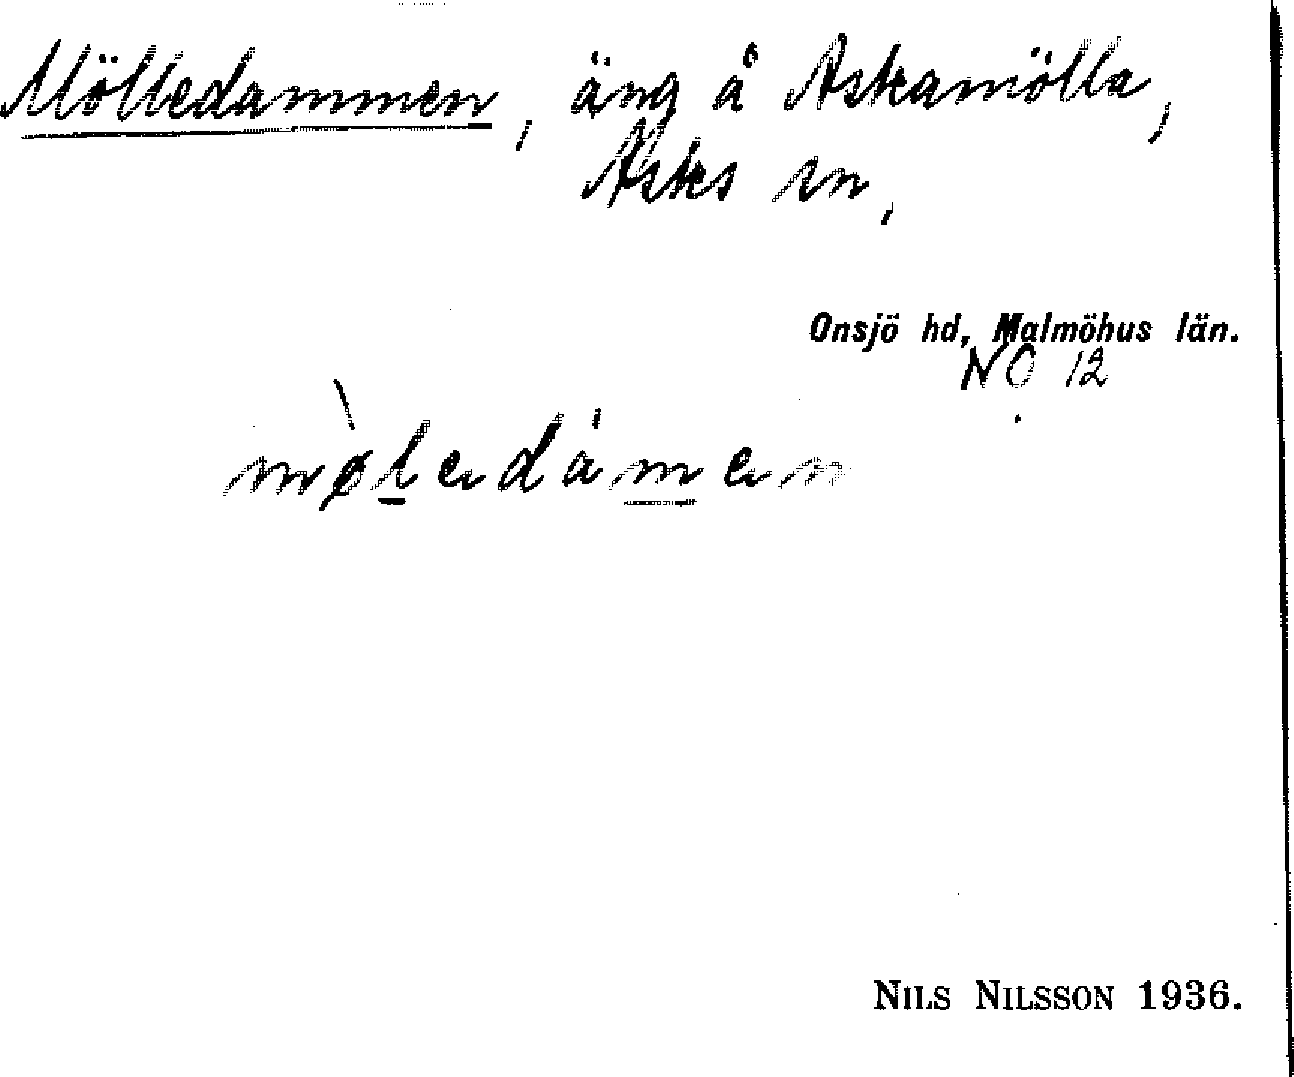 Mölledammen, äng å Askamölla,
Asks sn,
Onsjö hd, Malmöhus län.
NO 12
mø̀ledámen
NILS NILSSON 1936.